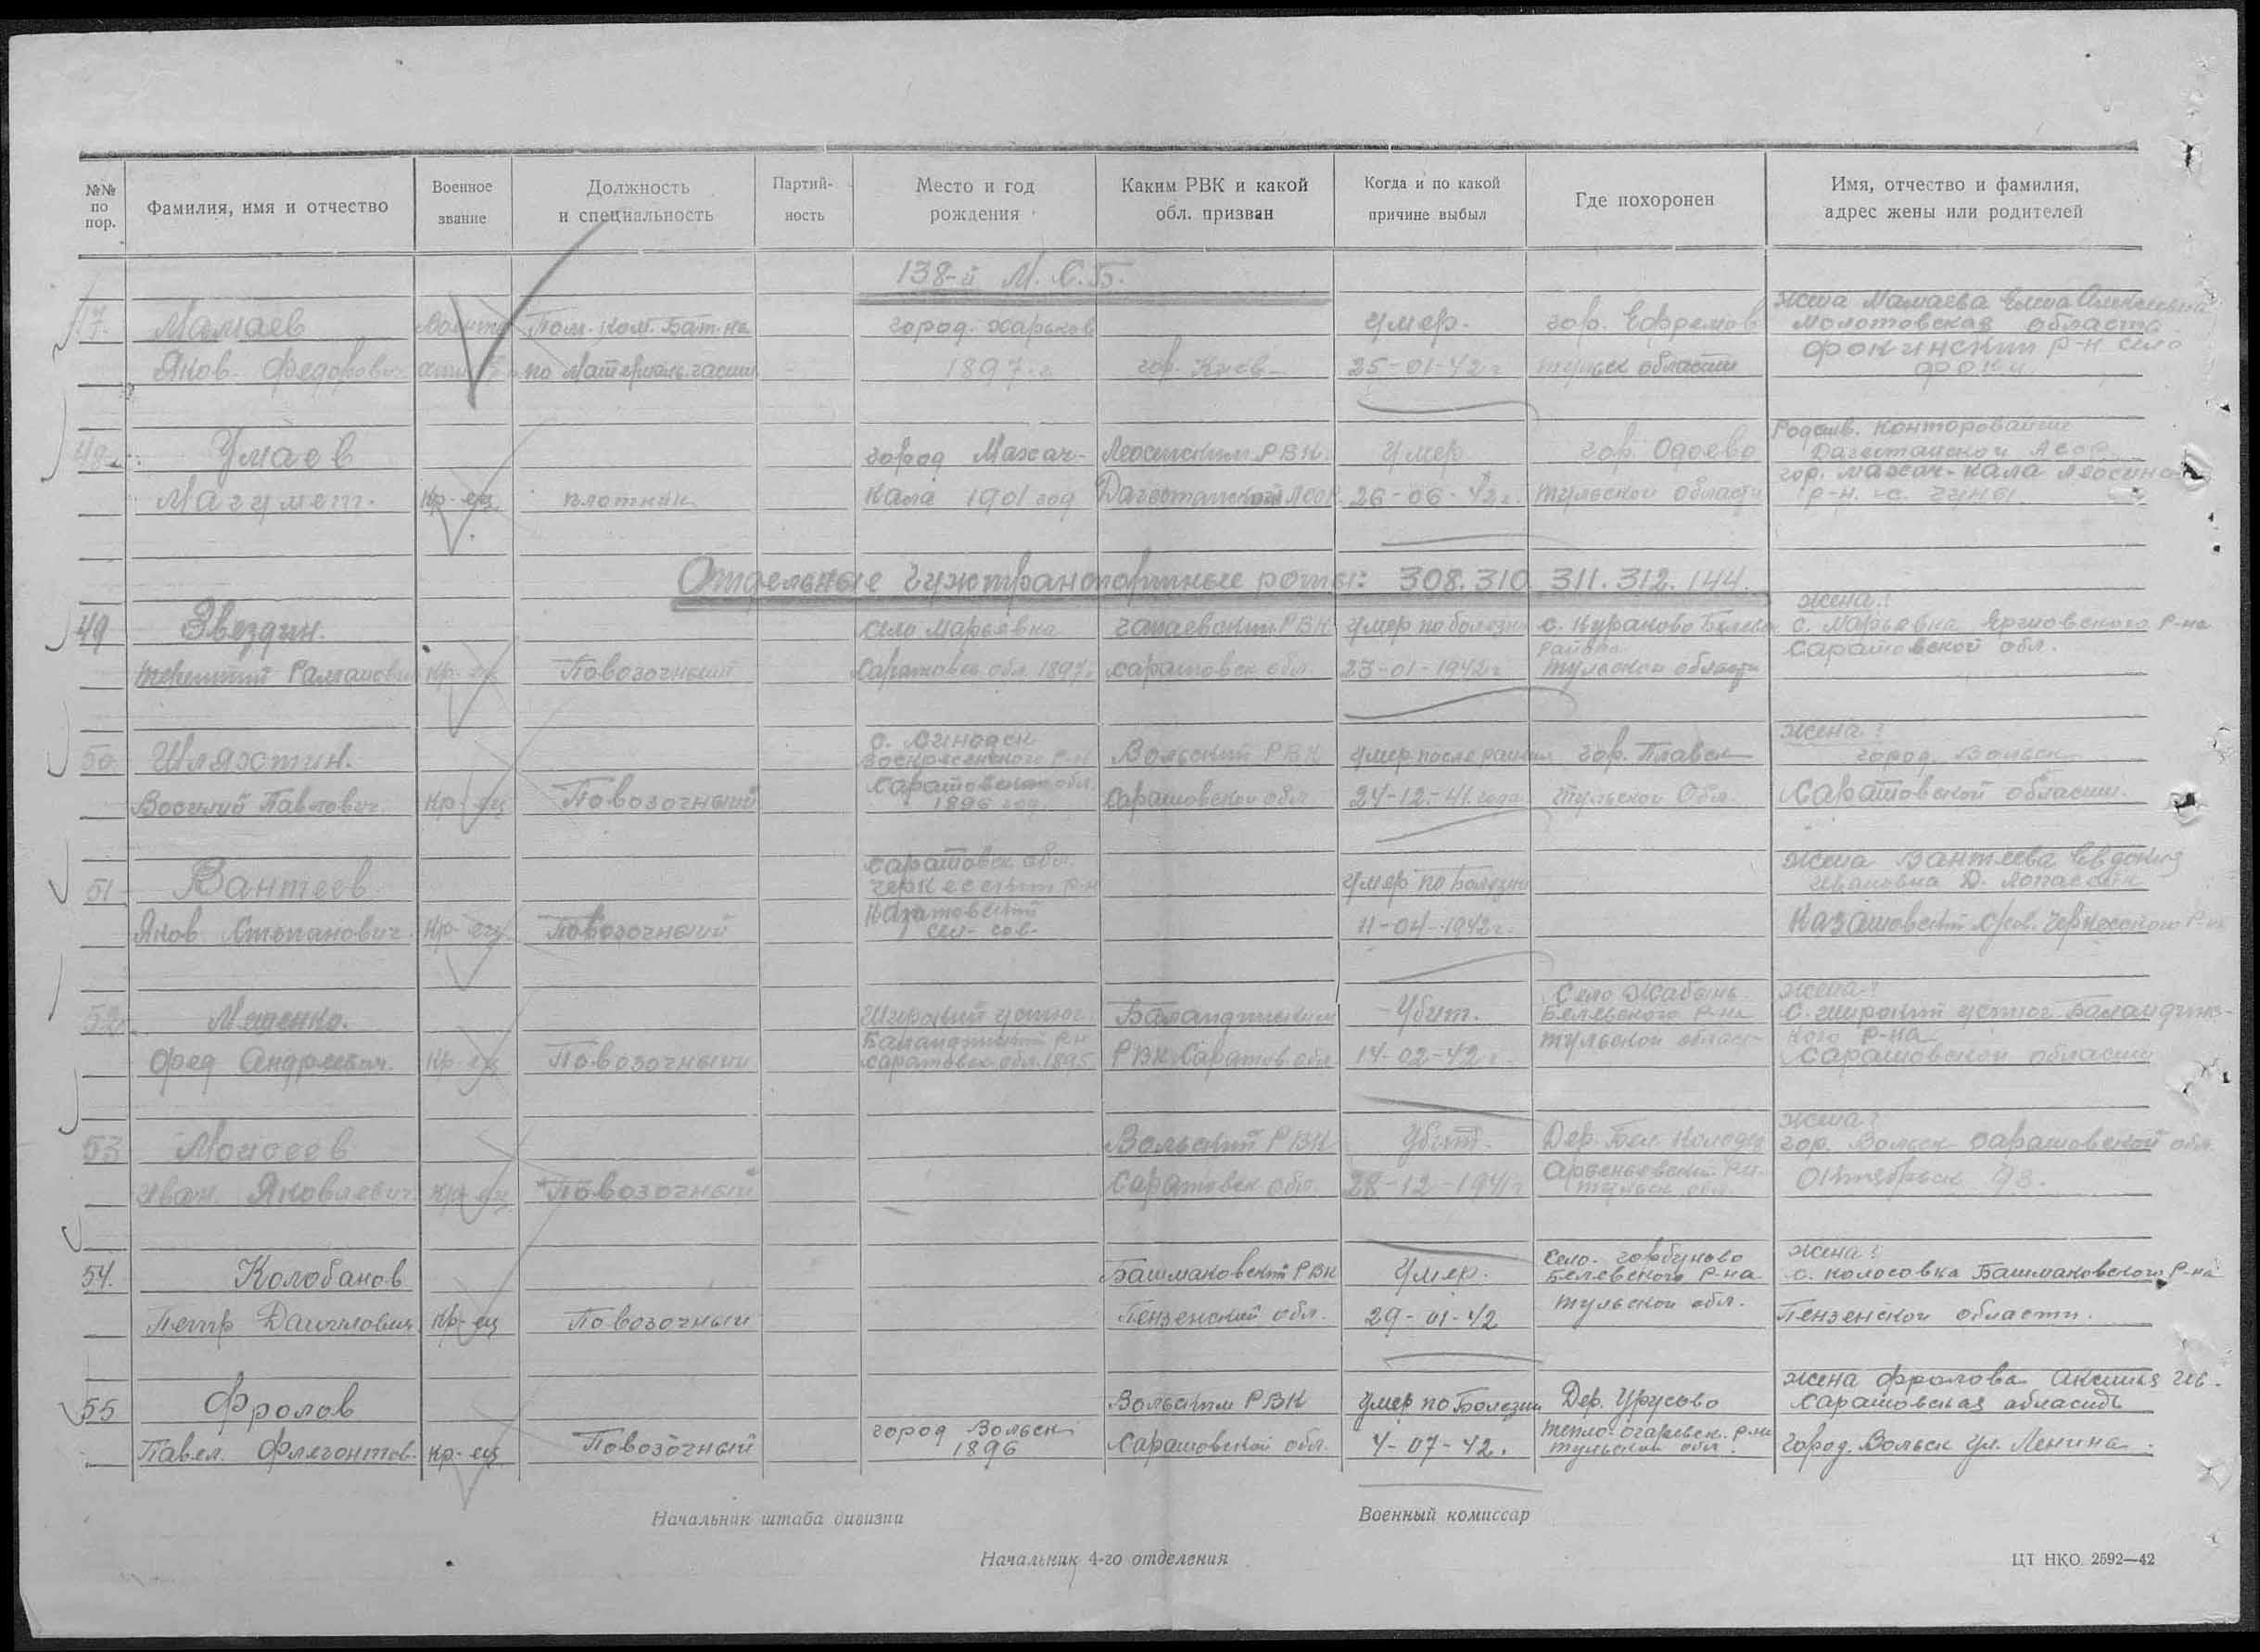 №№ по пор.
Фамилия, имя и отчество
Военное звание
Должность и специальность
Партий- ность
Место и год рождения
Каким РВК и какой обл. призван
Когда и по какой причине выбыл
Где похоронен
Имя, отчество и фамилия, адрес жены или родителей
138-й М.С.Б.
Мамаев Пом. ком. Бат-на город. Харьков Умер. гор. Ефремов жена Мамаева Елена
Яков Федорович по Материаль. части 1897 г. гор. Киев 25-01-42 г. Тульск области Молотовская область
Фокинский р-н село Фоки
48 Умаев город Махач- РВК. Умер гор. Одоево
Магумет. Кр-ец. плотник Кала 1901 год Дагестанской АССР 26-06-42 г. Тульской области гор. Махач-кала
р-н. с.
Отдельные Гужтранспортные роты: 308. 310 311. 312. 144.
49 Звездин. село Марьевка РВК Умер по болезни с. Кураково жена?
Кр-ец Повозочный Саратовск обл. 1897 г. Саратовск обл. 23-01-1942 г района Тульской области с. Марьевка р-на
Саратовской обл.
50 Шляхотин. Воскресенского р-н Вольский РВК Умер после гор. Плавск жена?
Василий Павлович Кр-ец Повозочный Саратовской обл. 1896 год. Саратовской обл 24-12-41 года Тульской Обл. город. Вольск
Саратовской области.
51 Вантеев Саратовск обл. Умер по Болезни жена Вантеева Евдокия
Яков Степанович Кр-ец Повозочный р-н сел-сов. 11-04-1942 г. Ивановна Д.
р-на
52 Фед Андреевич. Кр-ец Повозочный Широкий уступ Баландинским Убит. Село Жабынь жена?
Саратовск. обл. 1895 РВК Саратов. обл 14-02-42 г. Белевского р-на с. широкий уступ Баландинс-
Тульской област- кого р-на
Саратовской области
53 Моисеев Вольский РВК Убит. Дер. Бел. Колодез жена?
Иван Яковлевич Кр-ец Повозочный Саратовск обл. 28-12-1941 г Тульск обл. гор. Вольск Саратовской обл.
Октябрьск 93.
54. Колобанов Башмаковский РВК Умер. Село. Горбуново жена?
Петр Данилович Кр-ец Повозочный Пензенской обл. 29-01-42 Белевского р-на с. Колосовка Башмаковского р-на
Тульской обл. Пензенской области.
55 Фролов Вольским РВК Умер по Болезни Дер. Урусово жена Фролова Аксинья Ив.
Павел Флегонтов. Кр-ец Повозочный город Вольск 1896 Саратовской обл. 4-07-42. Тепло-Огаревск. р-на Саратовская область
Тульской обл. город. Вольск ул. Ленина.
Начальник штаба дивизии
Военный комиссар
Начальник 4-го отделения
ЦТ НКО 2592—42